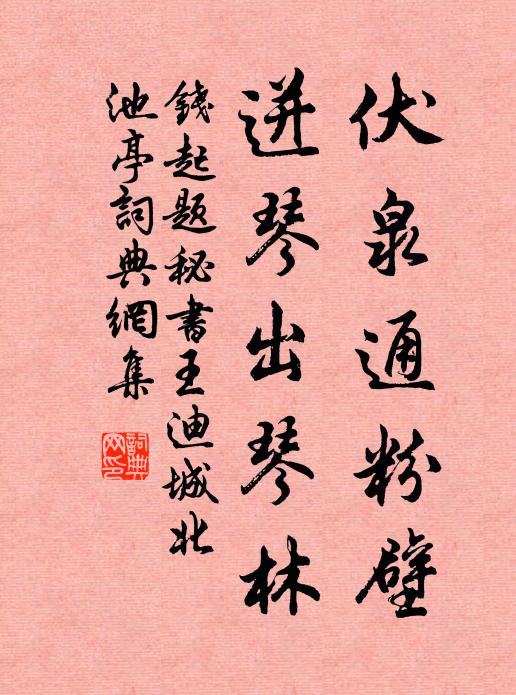 伏泉通粉壁
迸琴出琴林
錢起題秘書王迪城北
池亭詞典網集
詞典
网印